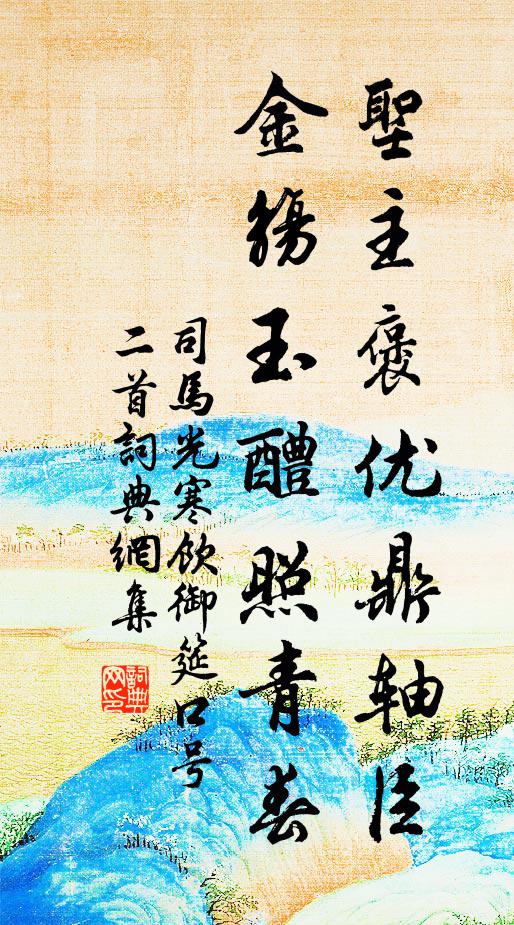 聖主褒优鼎轴臣
金觞玉醴照青春
司馬光寒飲御筵口号
二首詞典網集
詞典网印